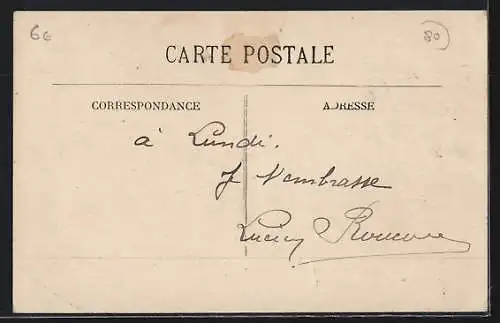 6€
80
CARTE POSTALE
CORRESPONDANCE
ADRESSE
à Lundi.
J t'embrasse
Lucien